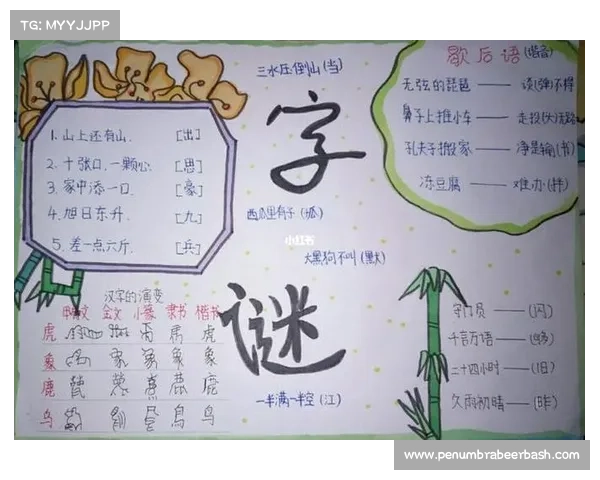 TG: MYYJJPP
三水压倒山 (当)
字
谜
1. 山上还有山. [出]
2. 十张口, 一颗心. [思]
3. 家中添一口. [豪]
4. 旭日东升. [九]
5. 差一点六斤. [兵]
歇后语 (谐音)
无弦的琵琶 —— 谈(弹)不得
鼻子上推小车 —— 走投(大)无路
孔夫子搬家 —— 净是输(书)
冻豆腐 —— 难办(拌)
西瓜里有子 (孤)
小红书
大黑狗不叫 (默)
一半满一半空 (江)
汉字的演变
甲骨文 金文 小篆 隶书 楷书
虎 虎
象 象 象
鹿 鹿 鹿
鸟 鳥 鸟
守门员 —— (闪)
千言万语 —— (够)
二十四小时 —— (旧)
久雨初晴 —— (昨)
www.penumbrabeerbash.com